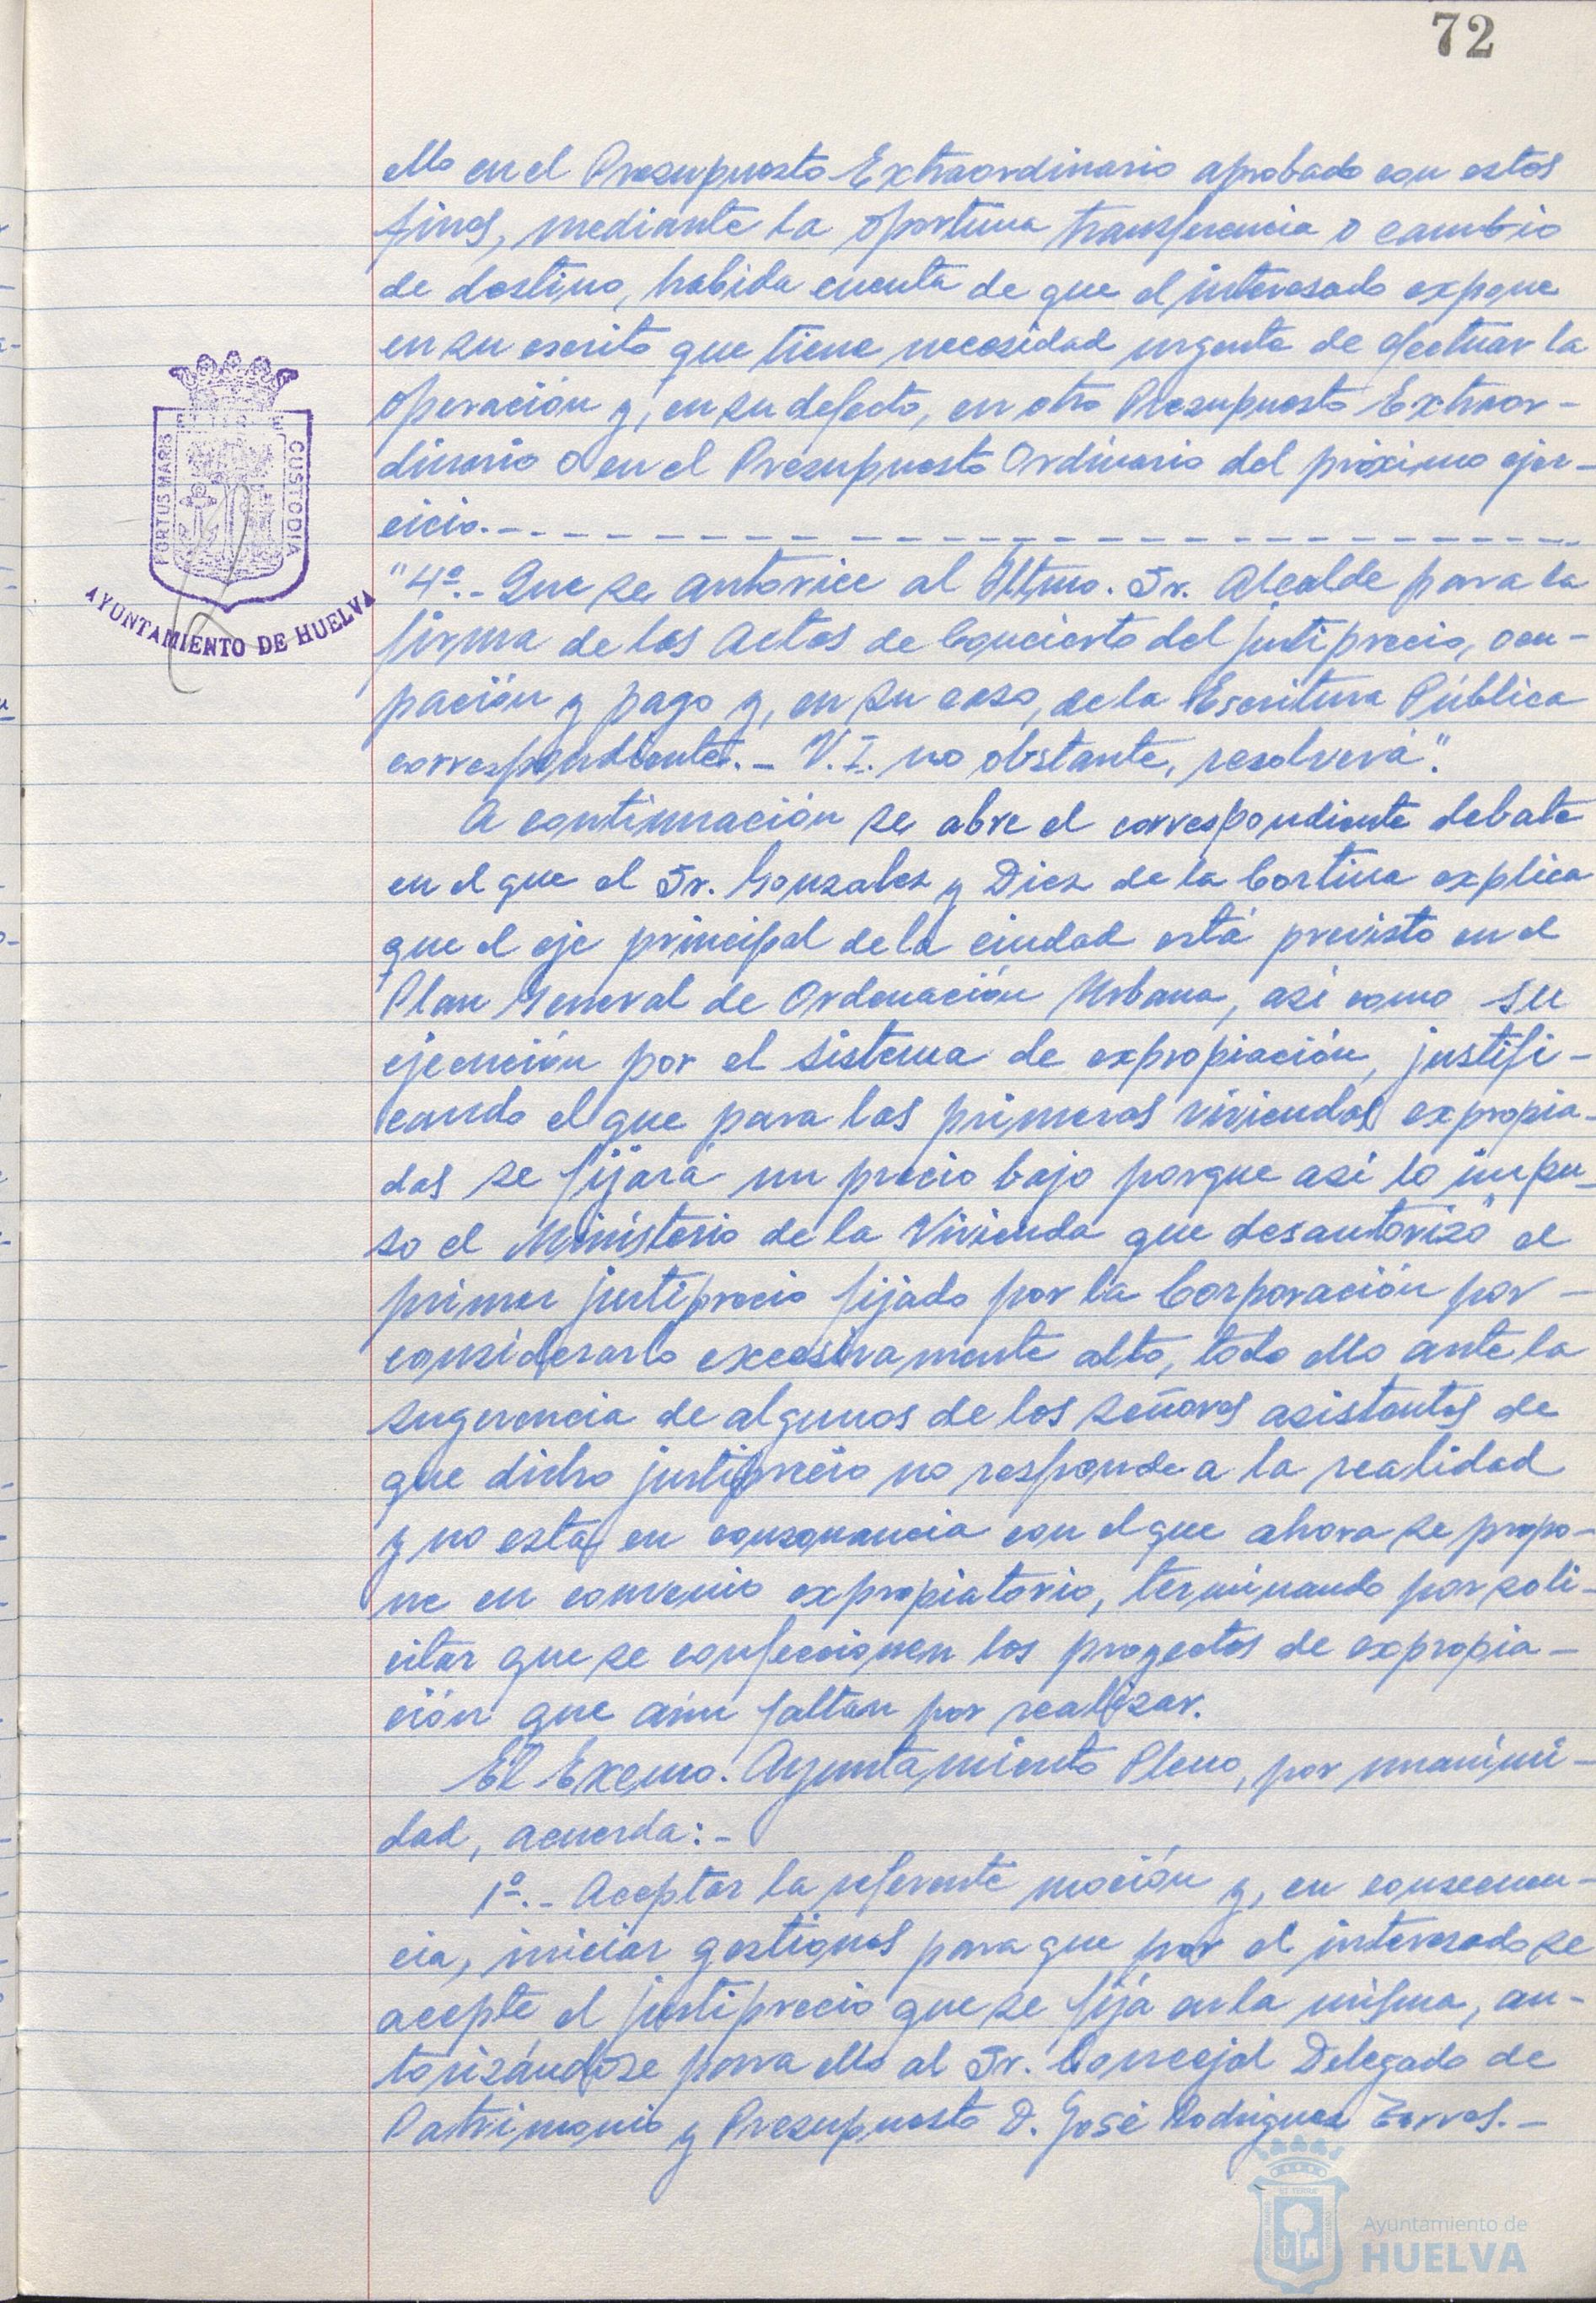 72
ello en el Presupuesto Extraordinario aprobado con estos
fines, mediante la oportuna transferencia o cambio
de destino, habida cuenta de que el interesado expone
en su escrito que tiene necesidad urgente de efectuar la
operación y, en su defecto, en otro Presupuesto Extraor-
dinario o en el Presupuesto Ordinario del próximo ejer-
cicio.-
"4º.- Que se autorice al Iltmo. Sr. Alcalde para la
firma de las Actas de Concierto del justiprecio, ocu-
pación y pago y, en su caso, de la Escritura Pública
correspondiente.- V.I. no obstante, resolverá".
A continuación se abre el correspondiente debate
en el que el Sr. Gonzalez y Diez de la Cortina explica
que el eje principal de la ciudad está previsto en el
Plan General de Ordenación Urbana, asi como su
ejecución por el sistema de expropiación, justifi-
cando el que para las primeras viviendas expropia-
das se fijara un precio bajo porque asi lo impu-
so el Ministerio de la Vivienda que desautorizó el
primer justiprecio fijado por la Corporación por-
considerarlo excesivamente alto, todo ello ante la
sugerencia de algunos de los señores asistentes de
que dicho justiprecio no responde a la realidad
y no esta en consonancia con el que ahora se propo-
ne en convenio expropiatorio, terminando por soli-
citar que se confeccionen los proyectos de expropia-
ción que aún faltan por realizar.
El Excmo. Ayuntamiento Pleno, por unanimi-
dad, acuerda:-
1º.- Aceptar la referente moción y, en consecuen-
cia, iniciar gestiones para que por el interesado se
acepte el justiprecio que se fija en la misma, au-
torizándose para ello al Sr. Concejal Delegado de
Patrimonio y Presupuesto D. José Rodriguez Torres.-
PORTUS MARIS
CUSTODIA
AYUNTAMIENTO DE HUELVA
Ayuntamiento de
HUELVA